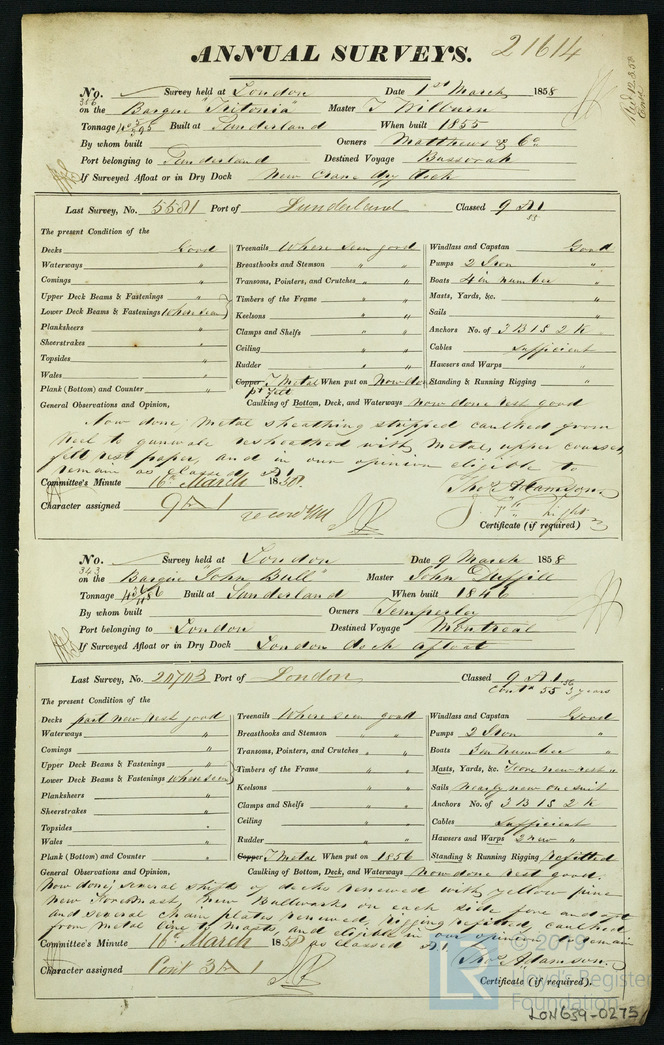 ANNUAL SURVEYS. 21614
No. Survey held at London Date 1st March 1858
on the Barque "Tritonia" Master T Wilburn
Tonnage Built at Sunderland When built 1855
By whom built Owners Matthews & Co
Port belonging to Sunderland Destined Voyage Bussorah
If Surveyed Afloat or in Dry Dock New Crane dry dock
Last Survey, No. 5581 Port of Sunderland Classed 9 A1
The present Condition of the
Decks Good Treenails Where seen good Windlass and Capstan Good
Waterways " Breasthooks and Stemson " " Pumps 2 Iron "
Comings " Transoms, Pointers, and Crutches " " Boats 4 in number "
Upper Deck Beams & Fastenings Timbers of the Frame " " Masts, Yards, &c. "
Lower Deck Beams & Fastenings Where seen Keelsons " " Sails "
Planksheers " Clamps and Shelfs " " Anchors No. of 3 B 1 S 2 K
Sheerstrakes " Ceiling " " Cables Sufficient
Topsides " Rudder " " Hawsers and Warps "
Wales " Copper Y Metal When put on Now done Standing & Running Rigging "
Plank (Bottom) and Counter " pt felt
General Observations and Opinion, Caulking of Bottom, Deck, and Waterways now done rest good
Now done Metal sheathing stripped caulked from
keel to gunwale resheathed with Metal, upper courses
felt rest paper, and in our opinion eligible to
remain as classed A1
Committee's Minute 16th March 1858 Thos Adamson
Character assigned 9 A 1
Certificate (if required)
No. Survey held at London Date 9 March 1858
343
on the Barque "John Bull" Master John Duffill
Tonnage Built at Sunderland When built 1846
By whom built Owners Temperley
Port belonging to London Destined Voyage Montreal
If Surveyed Afloat or in Dry Dock London dock afloat
Last Survey, No. Port of London Classed 9 A1
Contd 55 3 years
The present Condition of the
Decks part new rest good Treenails Where seen good Windlass and Capstan Good
Waterways " Breasthooks and Stemson " " Pumps 2 Iron "
Comings " Transoms, Pointers, and Crutches " " Boats 3 in number "
Upper Deck Beams & Fastenings Timbers of the Frame " " Masts, Yards, &c. Fore new rest "
Lower Deck Beams & Fastenings Where seen Keelsons " " Sails nearly new one suit
Planksheers " Clamps and Shelfs " " Anchors No. of 3 B 1 S 2 K
Sheerstrakes " Ceiling " Cables Sufficient
Topsides " Rudder " " Hawsers and Warps 2 new "
Wales " Copper Y Metal When put on 1856 Standing & Running Rigging Refitted
Plank (Bottom) and Counter "
General Observations and Opinion, Caulking of Bottom, Deck and Waterways now done rest good.
Now done, several shifts of decks renewed with yellow pine
New Foremast, New Bullwarks on each side fore and aft
and several chain plates renewed, rigging refitted, caulked
from metal line to masts, and eligible in our opinion to remain
as classed A1
Committee's Minute 16th March 1858 Thos Adamson
Character assigned Cont 3 A 1
Certificate (if required).
© 2019
Lloyd's Register
Foundation
LON639-0275